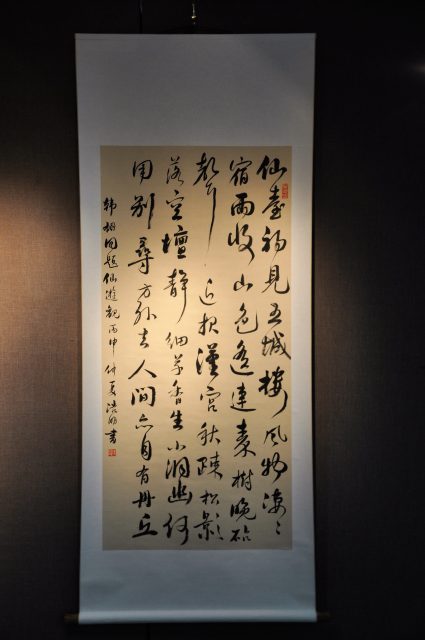 仙臺初見五城樓風物凄〻
宿雨收山色遙連秦樹晚砧
聲近報漢宮秋疎松影
落空壇靜細草香生小洞幽何
用别尋方外去人間亦自有丹丘
韩翃同題仙遊觀丙申仲夏浩書